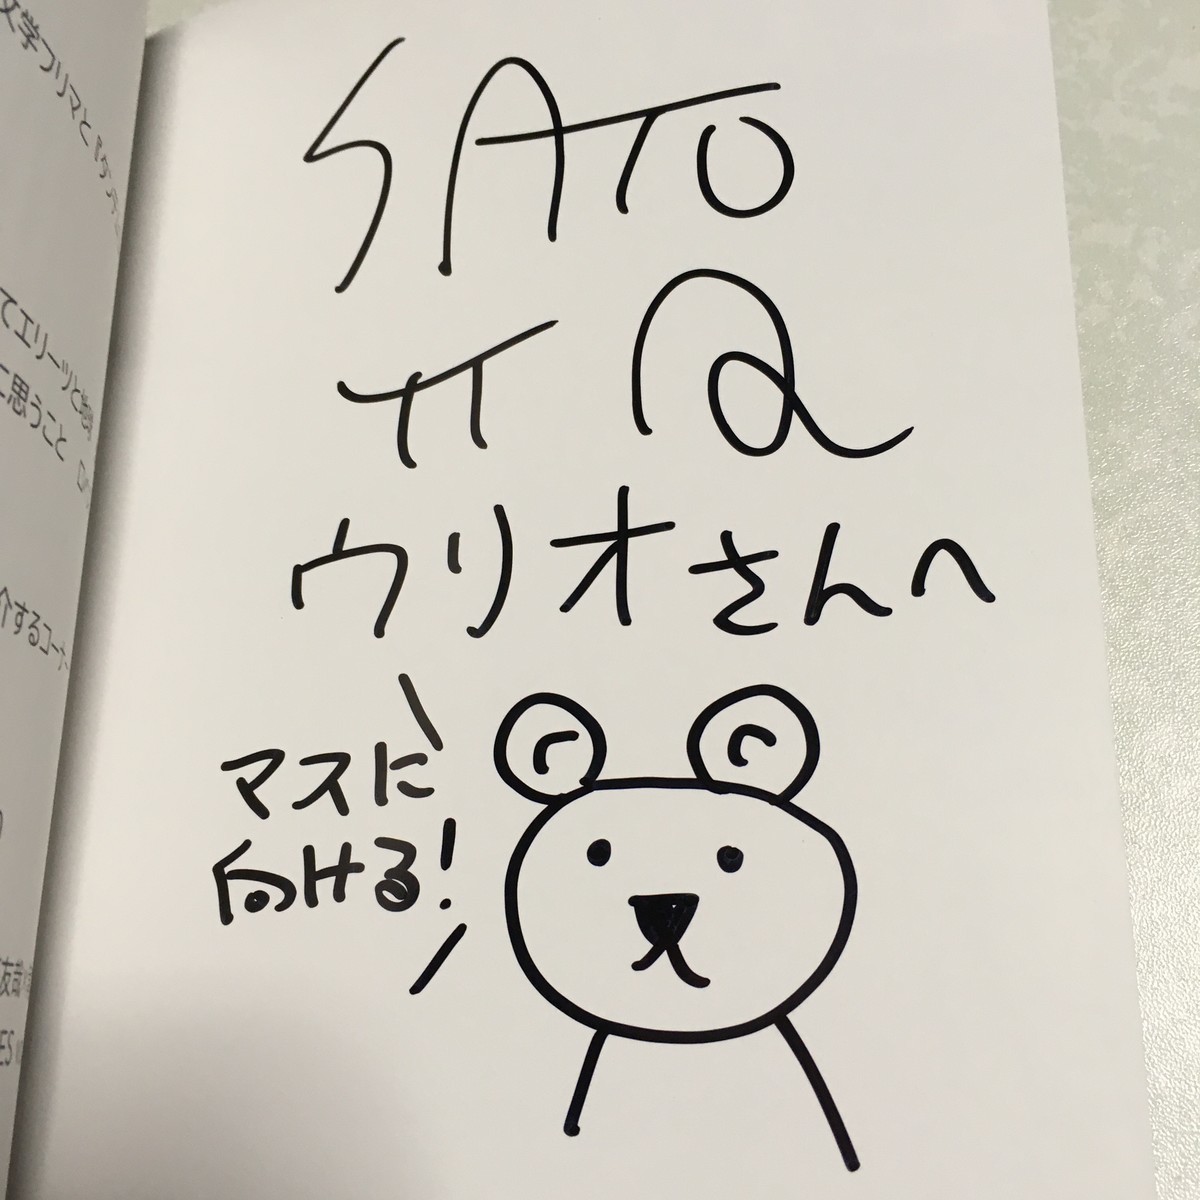 文学フリマと
てエリーツと
に思うこと
介するコーナー
友哉
ES
SATO
π Q
ウリオさんへ
マスに
向ける!